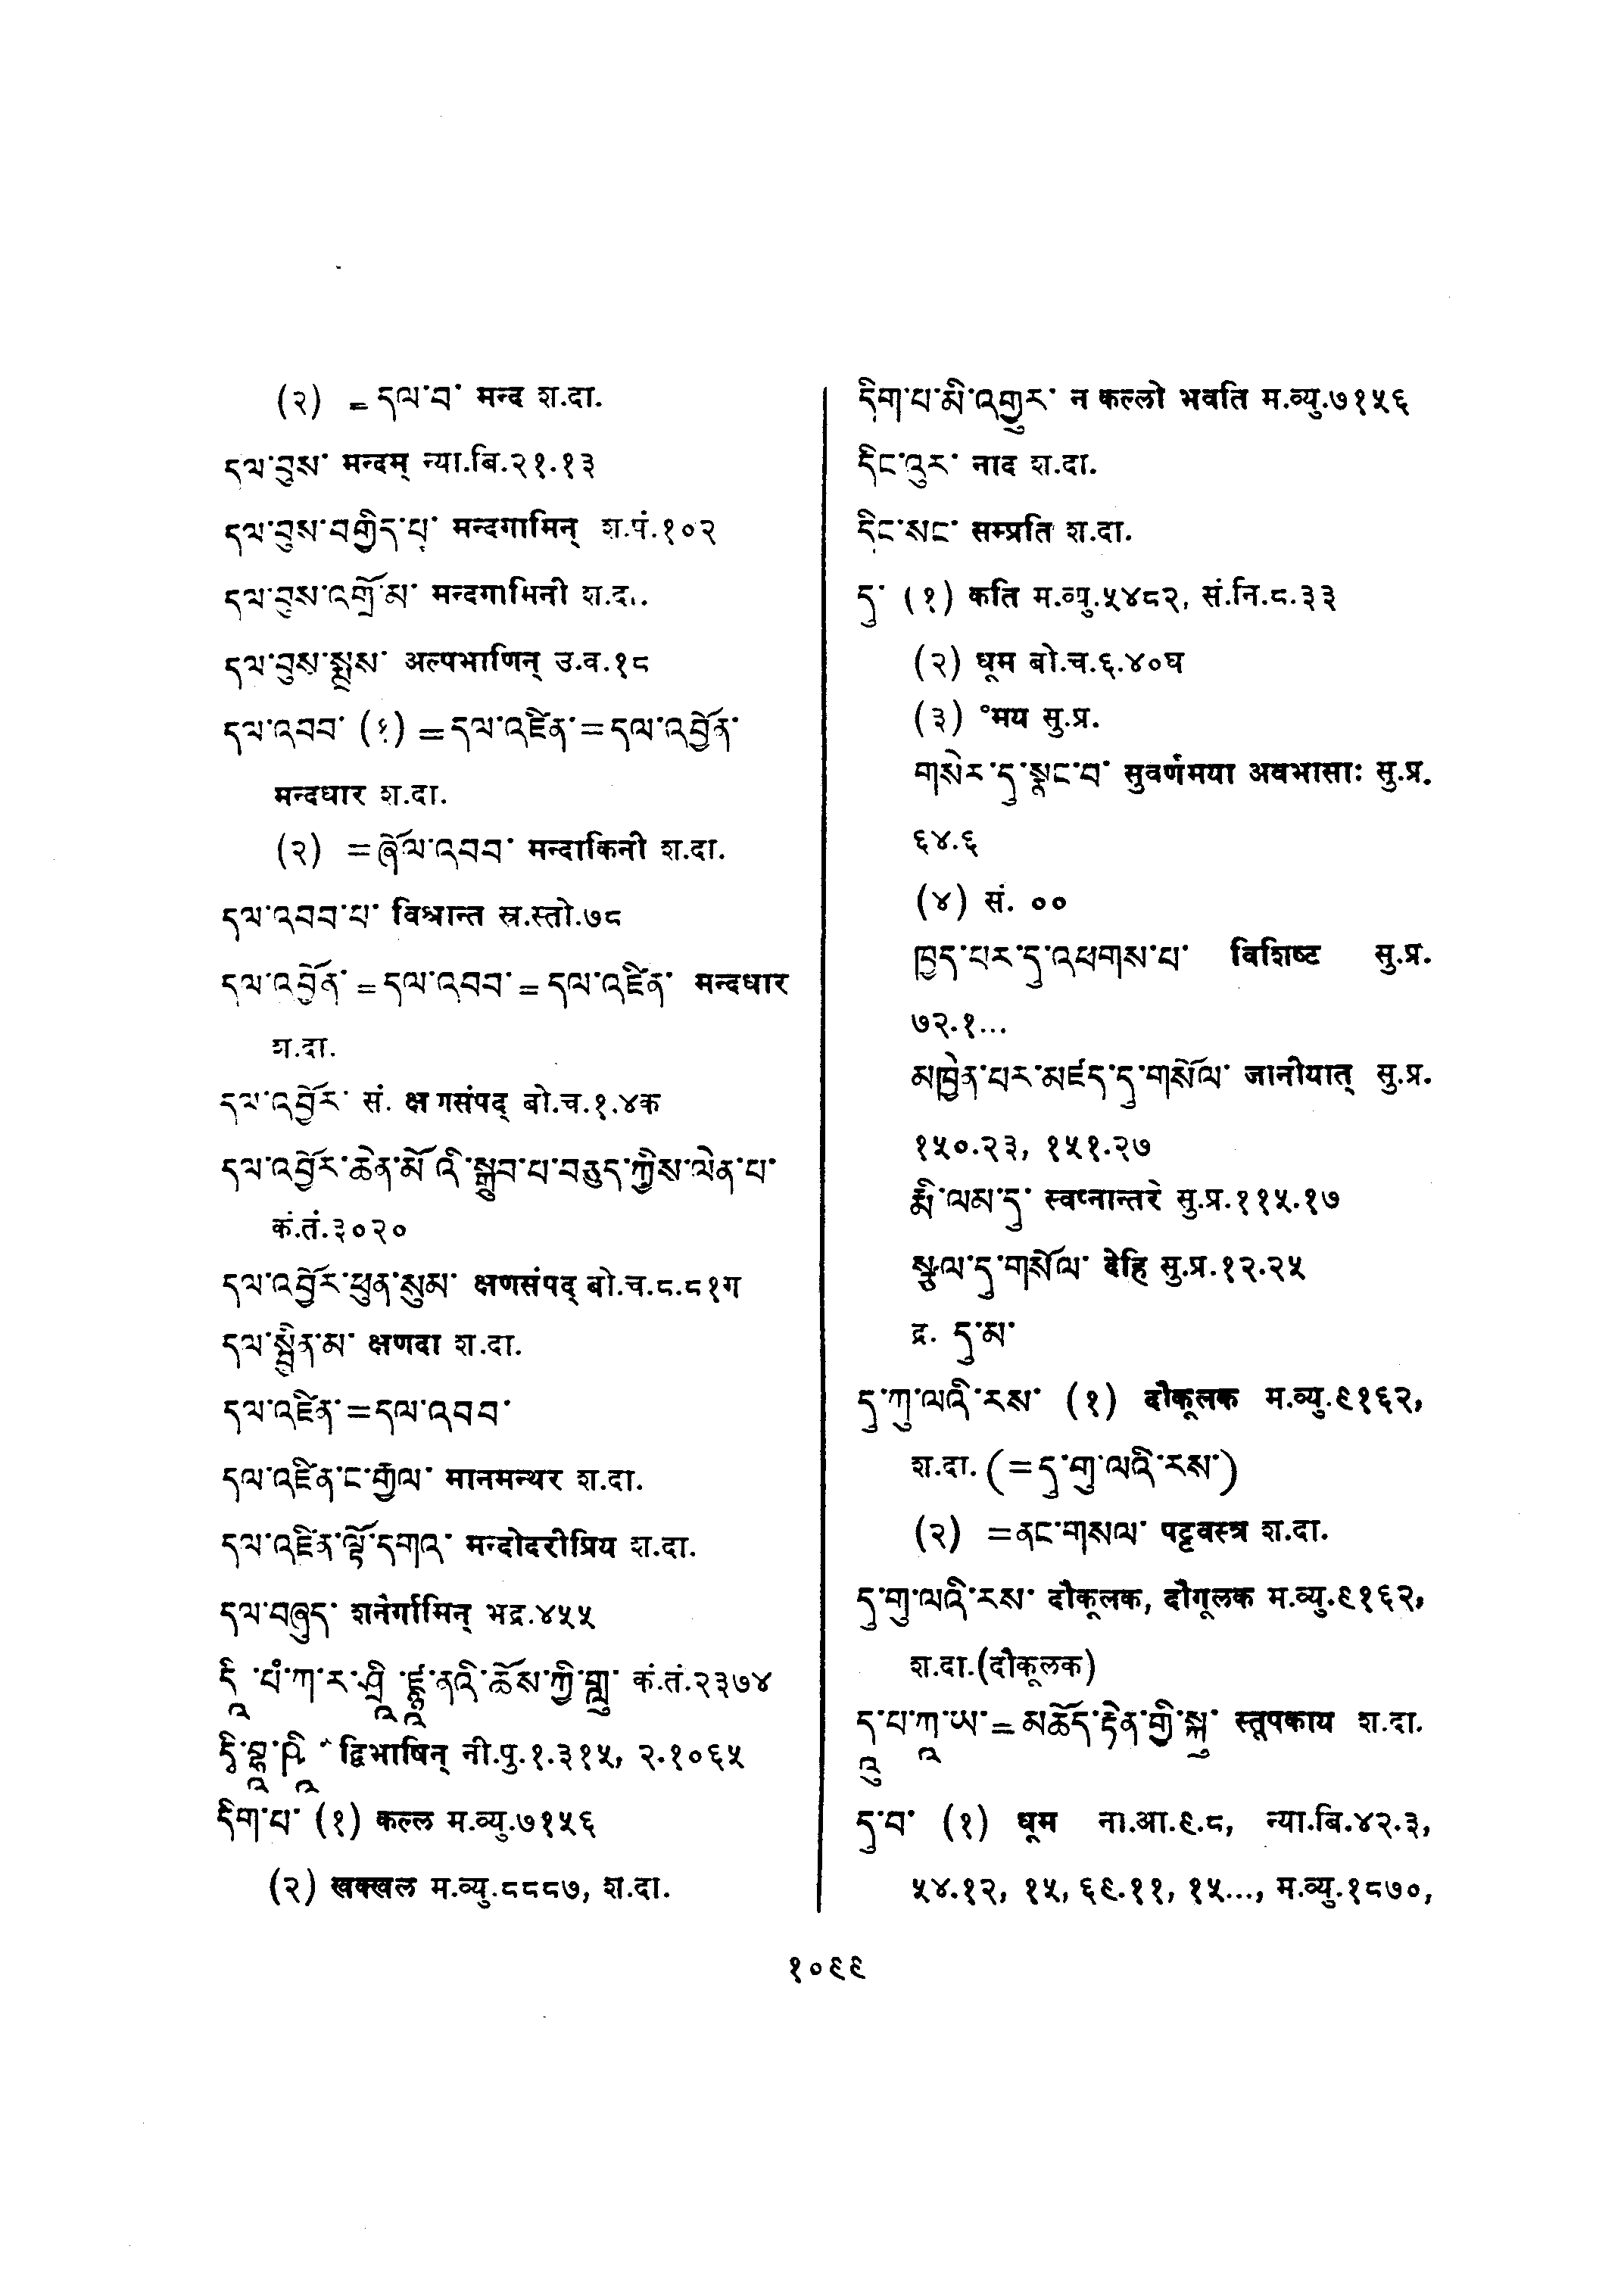 (२) =དལ་བ་ मन्द श.दा.
དལ་བུས་ मन्दम् न्या.बि.२१.१३
དལ་བུས་བགྱིད་པ་ मन्दगामिन् श.पं.१०२
དལ་བུས་འགྲོ་མ་ मन्दगामिनी श.दा.
དལ་བུས་སྨྲས་ अल्पभाणिन् उ.व.१८
དལ་འབབ་ (१) =དལ་འཛིན་=དལ་འབྱོན་
मन्दधार श.दा.
(२) =ཞོལ་འབབ་ मन्दाकिनी श.दा.
དལ་འབབ་པ་ विश्रान्त स्र.स्तो.७८
དལ་འབྱོན་=དལ་འབབ་=དལ་འཛིན་ मन्दधार
श.दा.
དལ་འབྱོར་ सं. क्षणसंपद् बो.च.१.४क
དལ་འབྱོར་ཆེན་མོ་འི་སྒྲུབ་པ་བཅུད་ཀྱིས་ལེན་པ་
कं.तं.३०२०
དལ་འབྱོར་ཕུན་སུམ་ क्षणसंपद् बो.च.८.८१ग
དལ་སྦྱིན་མ་ क्षणदा श.दा.
དལ་འཛིན་=དལ་འབབ་
དལ་འཛིན་ང་རྒྱལ་ मानमन्थर श.दा.
དལ་འཛིན་ལྟོ་དགའ་ मन्दोदरीप्रिय श.दा.
དལ་བཞུད་ शनैर्गामिन् भद्र.४५५
དཱི་པཾ་ཀ་ར་ཤྲཱི་ཛྙཱ་ནའི་ཆོས་ཀྱི་གླུ་ कं.तं.२३७४
དྭི་བྷཱ་ཥཱི་ द्विभाषिन् नी.पु.१.३१५, २.१०६५
དིག་པ་ (१) कल्ल म.व्यु.७१५६
(२) खक्खल म.व्यु.८८८७, श.दा.
དིག་པ་མི་འགྱུར་ न कल्लो भवति म.व्यु.७१५६
དིང་འུར་ नाद श.दा.
དིང་སང་ सम्प्रति श.दा.
དུ་ (१) कति म.व्यु.५४८२, सं.नि.८.३३
(२) धूम बो.च.६.४०घ
(३) °मय सु.प्र.
གསེར་དུ་སྣང་བ་ सुवर्णमया अवभासाः सु.प्र.
६४.६
(४) सं. ००
ཁྱད་པར་དུ་འཕགས་པ་ विशिष्ट सु.प्र.
७२.१...
མཁྱེན་པར་མཛད་དུ་གསོལ་ जानीयात् सु.प्र.
१५०.२३, १५१.२७
རྨི་ལམ་དུ་ स्वप्नान्तरे सु.प्र.११५.१७
སྩལ་དུ་གསོལ་ देहि सु.प्र.१२.२५
द्र. དུ་མ་
དུ་ཀུ་ལའི་རས་ (१) दौकूलक म.व्यु.९१६२,
श.दा. (=དུ་གུ་ལའི་རས་)
(२) =ནང་གསལ་ पट्टवस्त्र श.दा.
དུ་གུ་ལའི་རས་ दौकूलक, दौगूलक म.व्यु.९१६२,
श.दा.(दौकूलक)
དཱུ་པ་ཀཱ་ཡ་=མཆོད་རྟེན་གྱི་སྐུ་ स्तूपकाय श.दा.
དུ་བ་ (१) धूम ना.आ.९.८, न्या.बि.४२.३,
५४.१२, १५, ६९.११, १५..., म.व्यु.१८७०,
१०९९